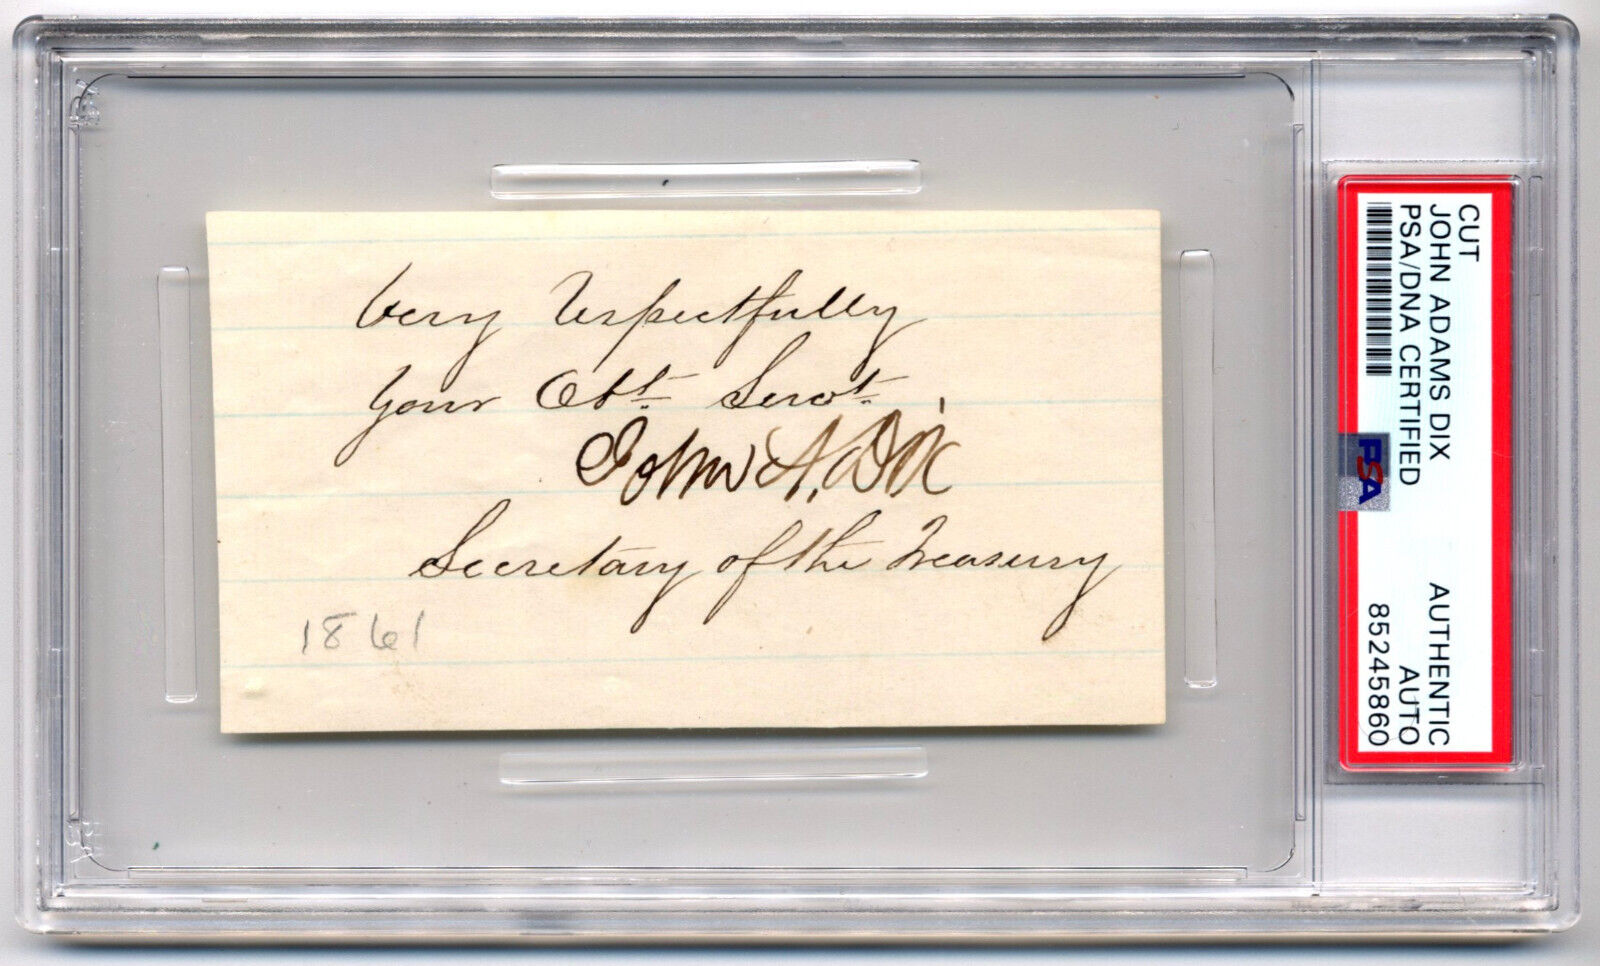 Very Respectfully
Your Obt. Servt.
John A. Dix
Secretary of the Treasury
1861
CUT
JOHN ADAMS DIX
PSA/DNA CERTIFIED
AUTHENTIC
AUTO
85245860
PSA